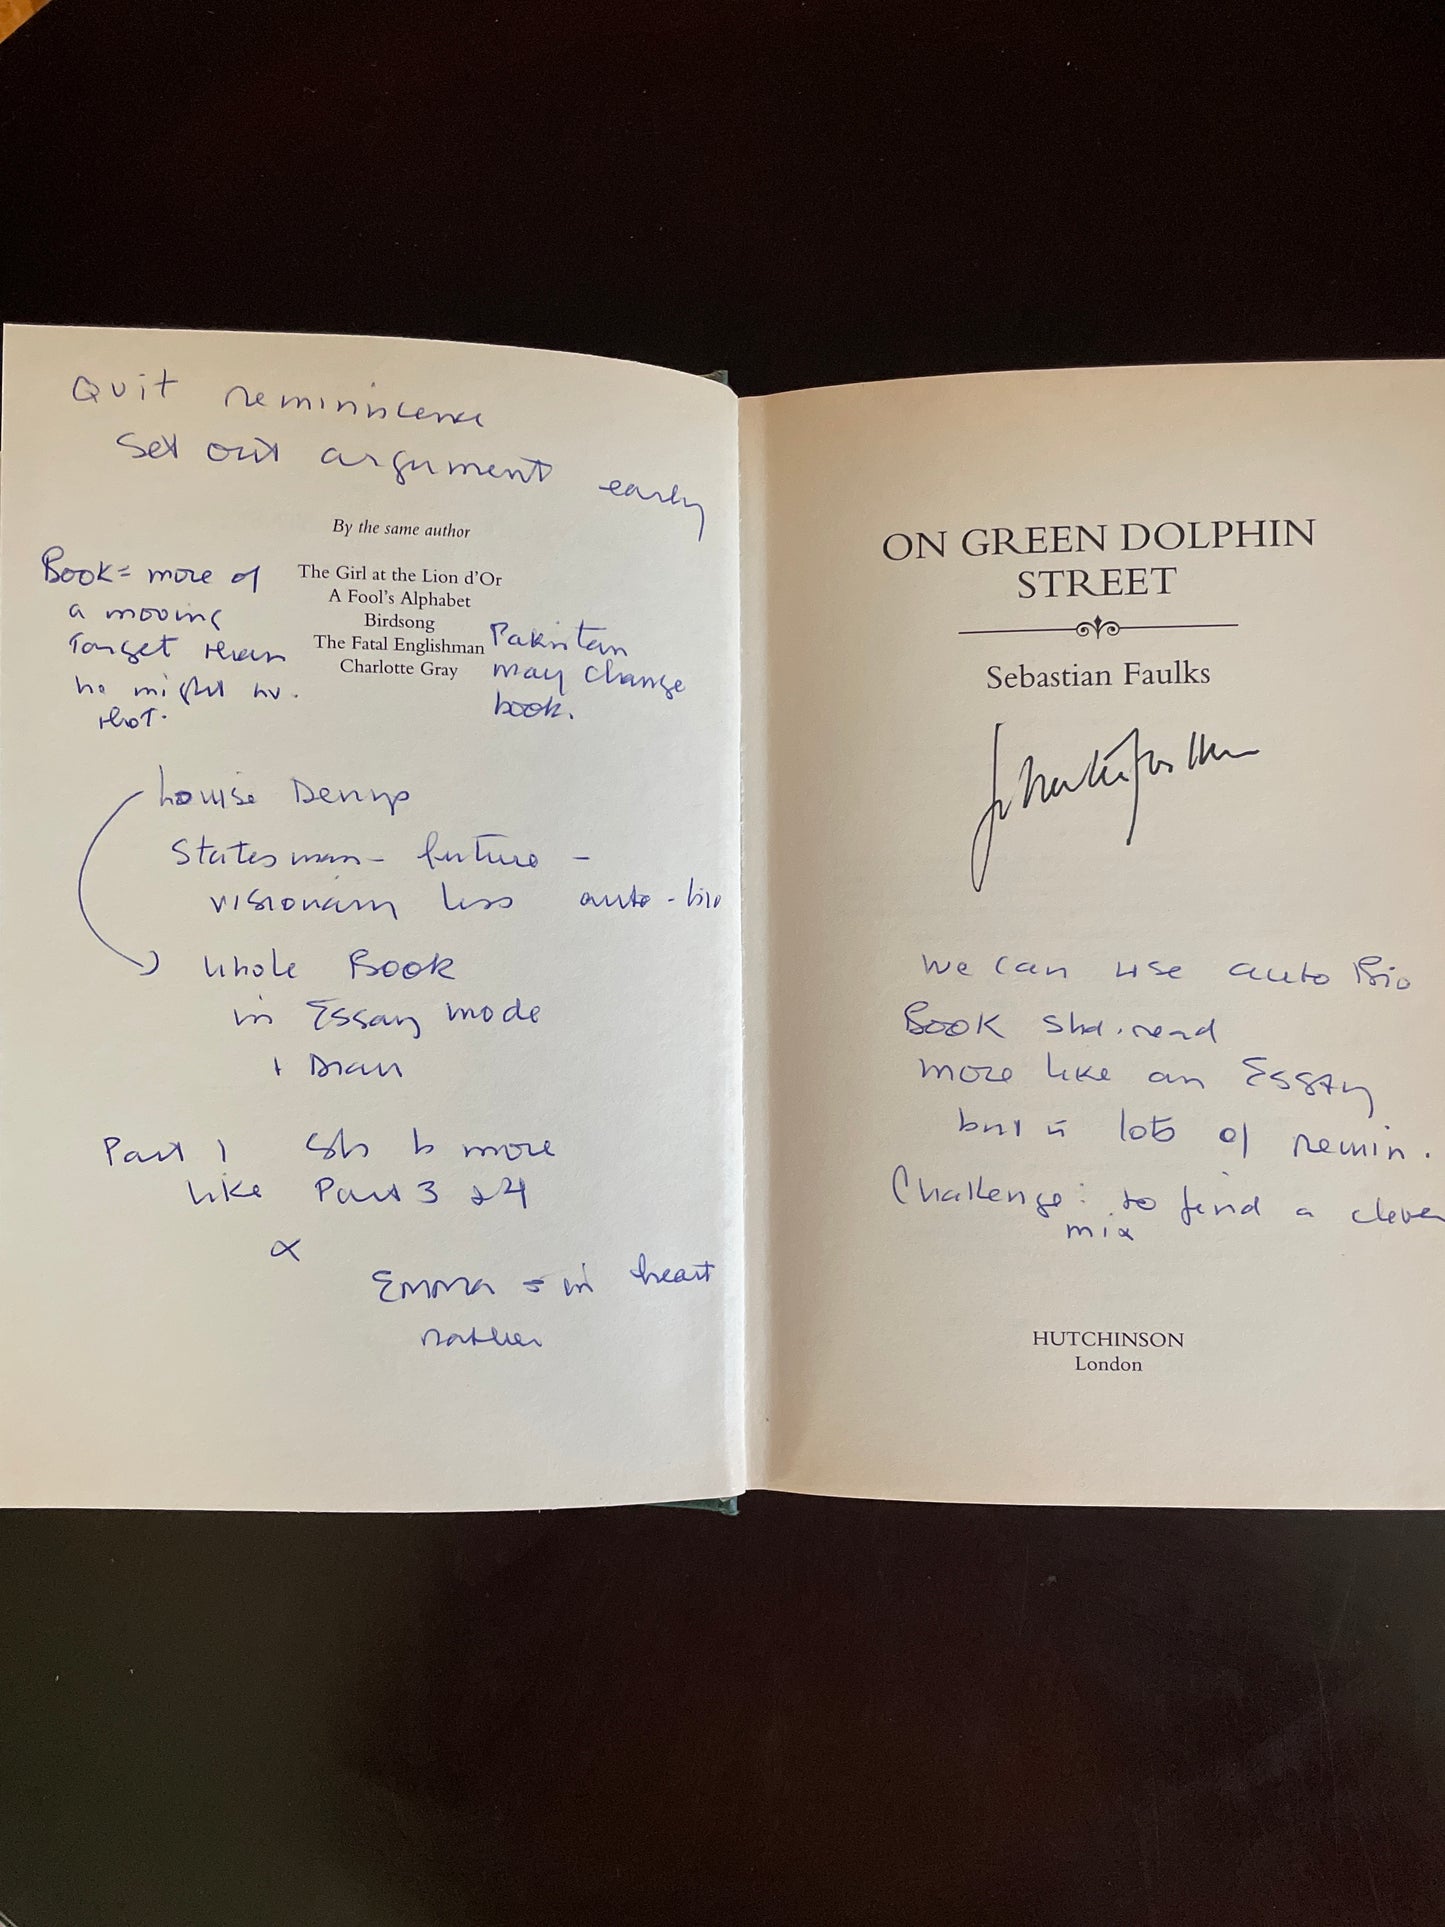 Quit reminiscence
Set out argument early
By the same author
The Girl at the Lion d'Or
A Fool's Alphabet
Birdsong
The Fatal Englishman
Charlotte Gray
Book = more of
a moving
Target than
he might hv.
thot.
Pakistan
may change
book.
Louise Denys
Statesman - future -
visionary less auto-bio
Whole Book
in Essay mode
Part 1 Sh b more
like Part 3 & 4
Emma = in heart
rather
ON GREEN DOLPHIN
STREET
Sebastian Faulks
We can use auto Bio
Book shd. read
more like an Essay
but lots of remin.
Challenge: to find a clever
mix
HUTCHINSON
London